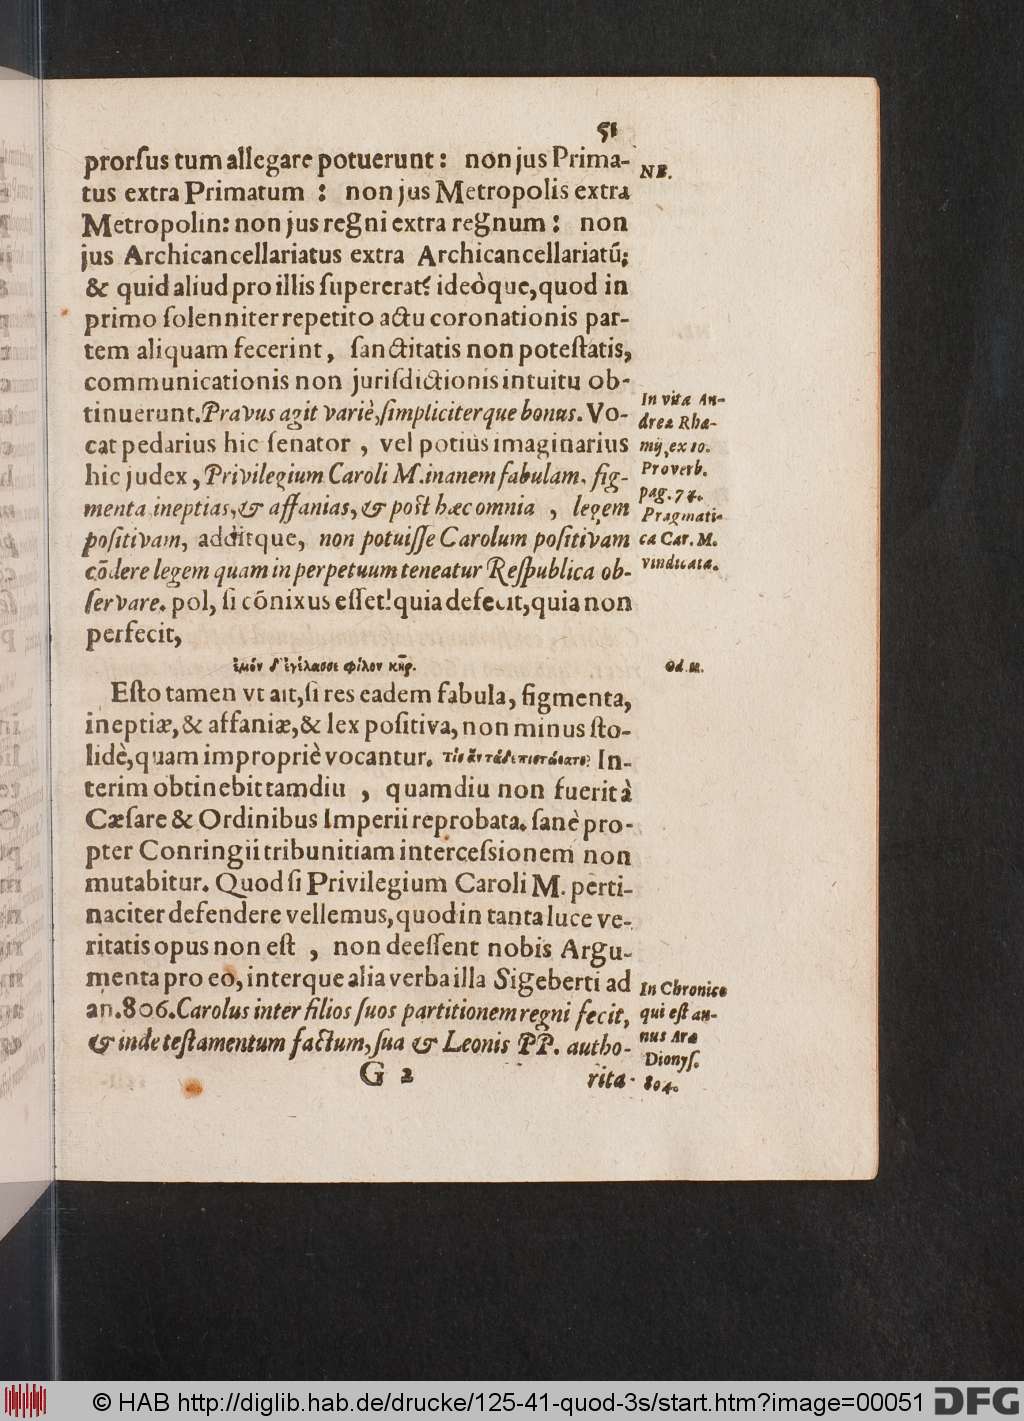 51
prorſus tum allegare potuerunt: non jus Prima-
NB.
tus extra Primatum : non jus Metropolis extra
Metropolin: non jus regni extra regnum : non
jus Archicancellariatus extra Archicancellariatũ;
& quid aliud pro illis ſupererat? ideòque, quod in
primo ſolenniter repetito actu coronationis par-
tem aliquam fecerint, ſanctitatis non poteſtatis,
communicationis non jurisdictionis intuitu ob-
tinuerunt. Pravus agit variè, ſimpliciterque bonus. Vo-
cat pedarius hic ſenator, vel potiùs imaginarius
hic judex, Privilegium Caroli M. inanem fabulam, fig-
menta, ineptias, & affanias, & poſt hæc omnia, legem
poſitivam, additque, non potuiſſe Carolum poſitivam
cōdere legem quam in perpetuum teneatur Reſpublica ob-
ſervare. pol, ſi cōnixus eſſet! quia defecit, quia non
perfecit,
In vita An-
dreæ Rha-
mij, ex 10.
Proverb.
pag. 74.
Pragmati-
ca Car. M.
vindicata.
ἐμὸν δ' ἐγέλασσε φίλον κῆρ.
Od. ι.
Eſto tamen vt ait, ſi res eadem fabula, figmenta,
ineptiæ, & affaniæ, & lex poſitiva, non minus ſto-
lidè, quam impropriè vocantur. In-
terim obtinebit tamdiu, quamdiu non fuerit à
Cæſare & Ordinibus Imperii reprobata. ſanè pro-
pter Conringii tribunitiam interceſsionem non
mutabitur. Quod ſi Privilegium Caroli M. perti-
naciter defendere vellemus, quod in tanta luce ve-
ritatis opus non eſt, non deeſſent nobis Argu-
menta pro eo, interque alia verba illa Sigeberti ad
an. 806. Carolus inter filios ſuos partitionem regni fecit,
& inde teſtamentum factum, ſua & Leonis PP. autho-
In Chronico
qui eſt an-
nus Aræ
Dionyſ.
804.
G 2
rita-
© HAB http://diglib.hab.de/drucke/125-41-quod-3s/start.htm?image=00051
DFG